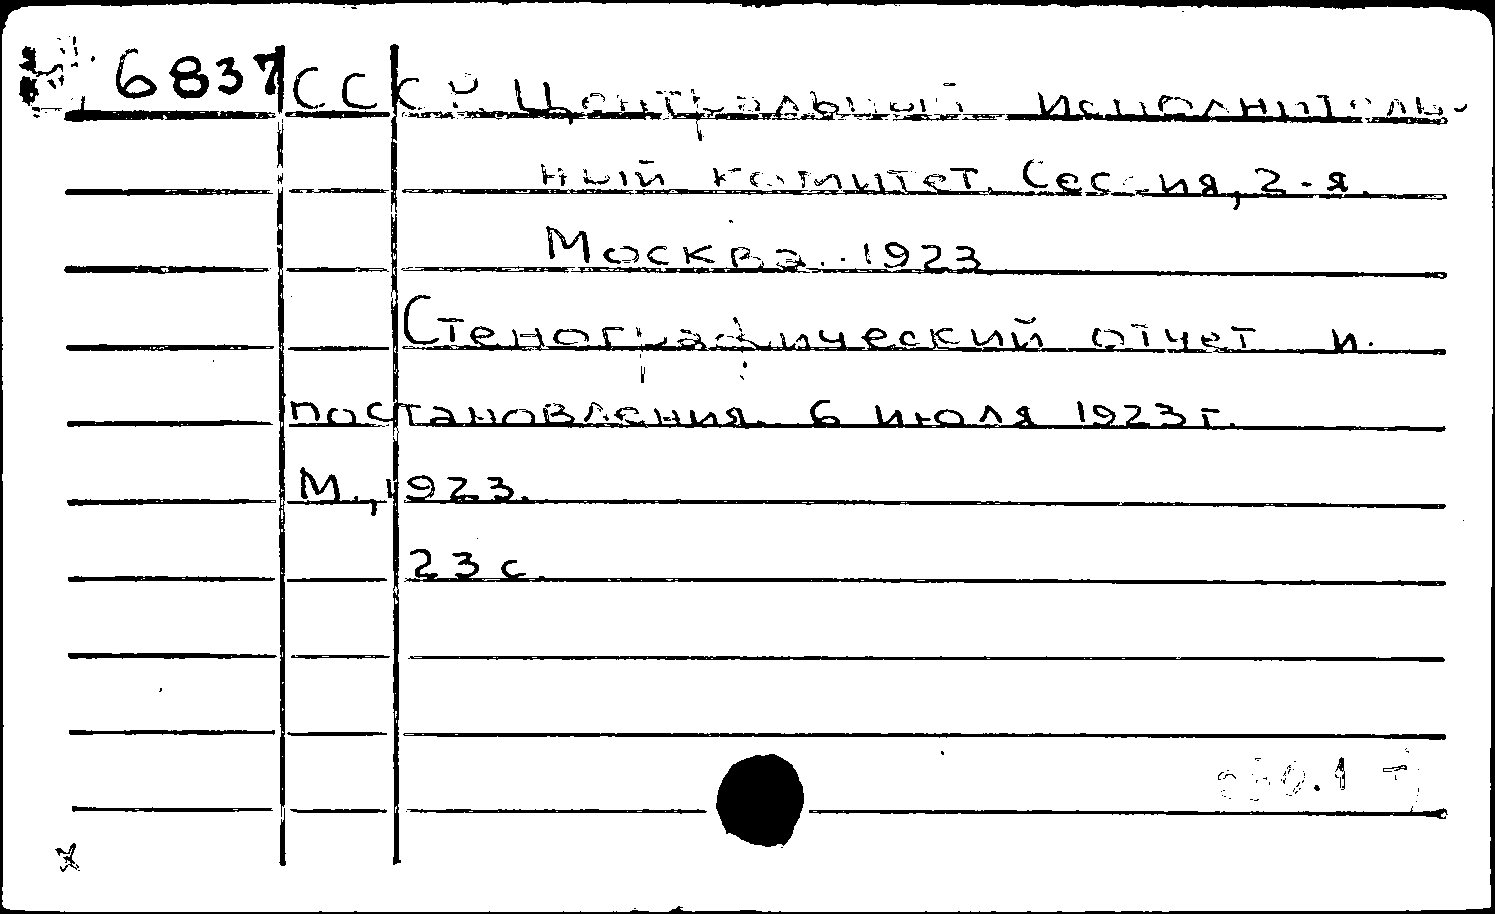 6837 СССР. Центральный исполнитель-
ный комитет. Сессия, 2-я.
Москва. 1923
Стенографический отчет и
постановления. 6 июля 1923 г.
М., 1923.
23 с.